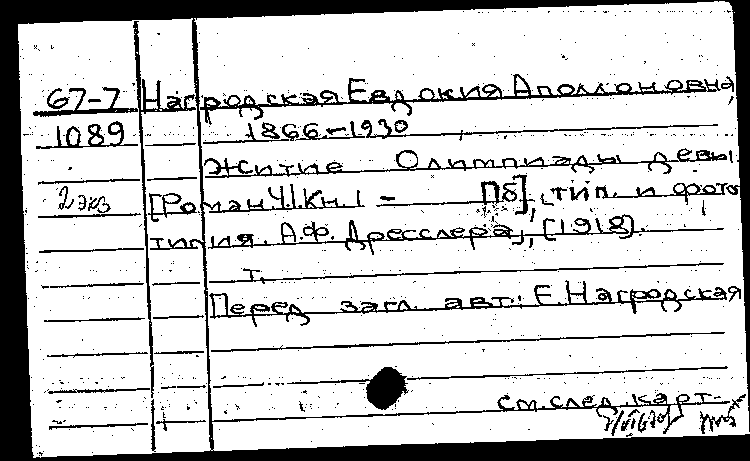 67-7 Нагродская Евдокия Аполлоновна
1089 1866-1930
Житие Олимпиады девы
2 экз [Роман. Ч.I. Кн. I - Пб], тип. и фото
типия. А.Ф. Дресслера, [1918].
т.
Перед загл. авт.: Е. Нагродская
см. след. карт.